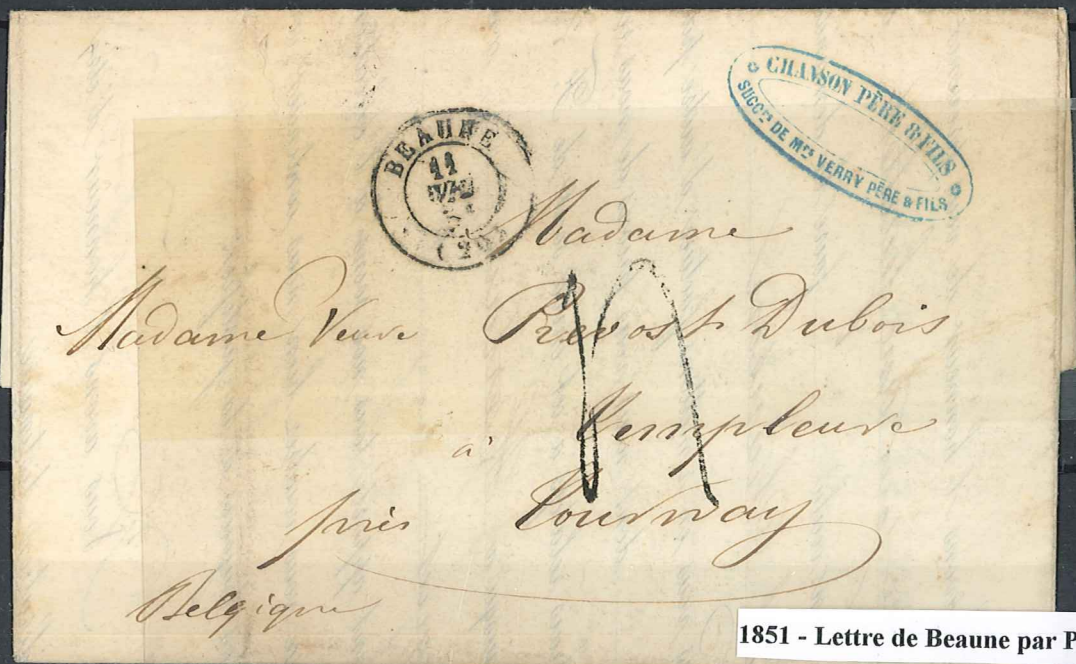 CHANSON PÈRE & FILS
SUCC.RS DE M.RS VERRY PÈRE & FILS
BEAUNE
11
(20)
Madame
Madame Veuve Prevost Dubois
à Templeuve
près Tournay
Belgique
1851 - Lettre de Beaune par P